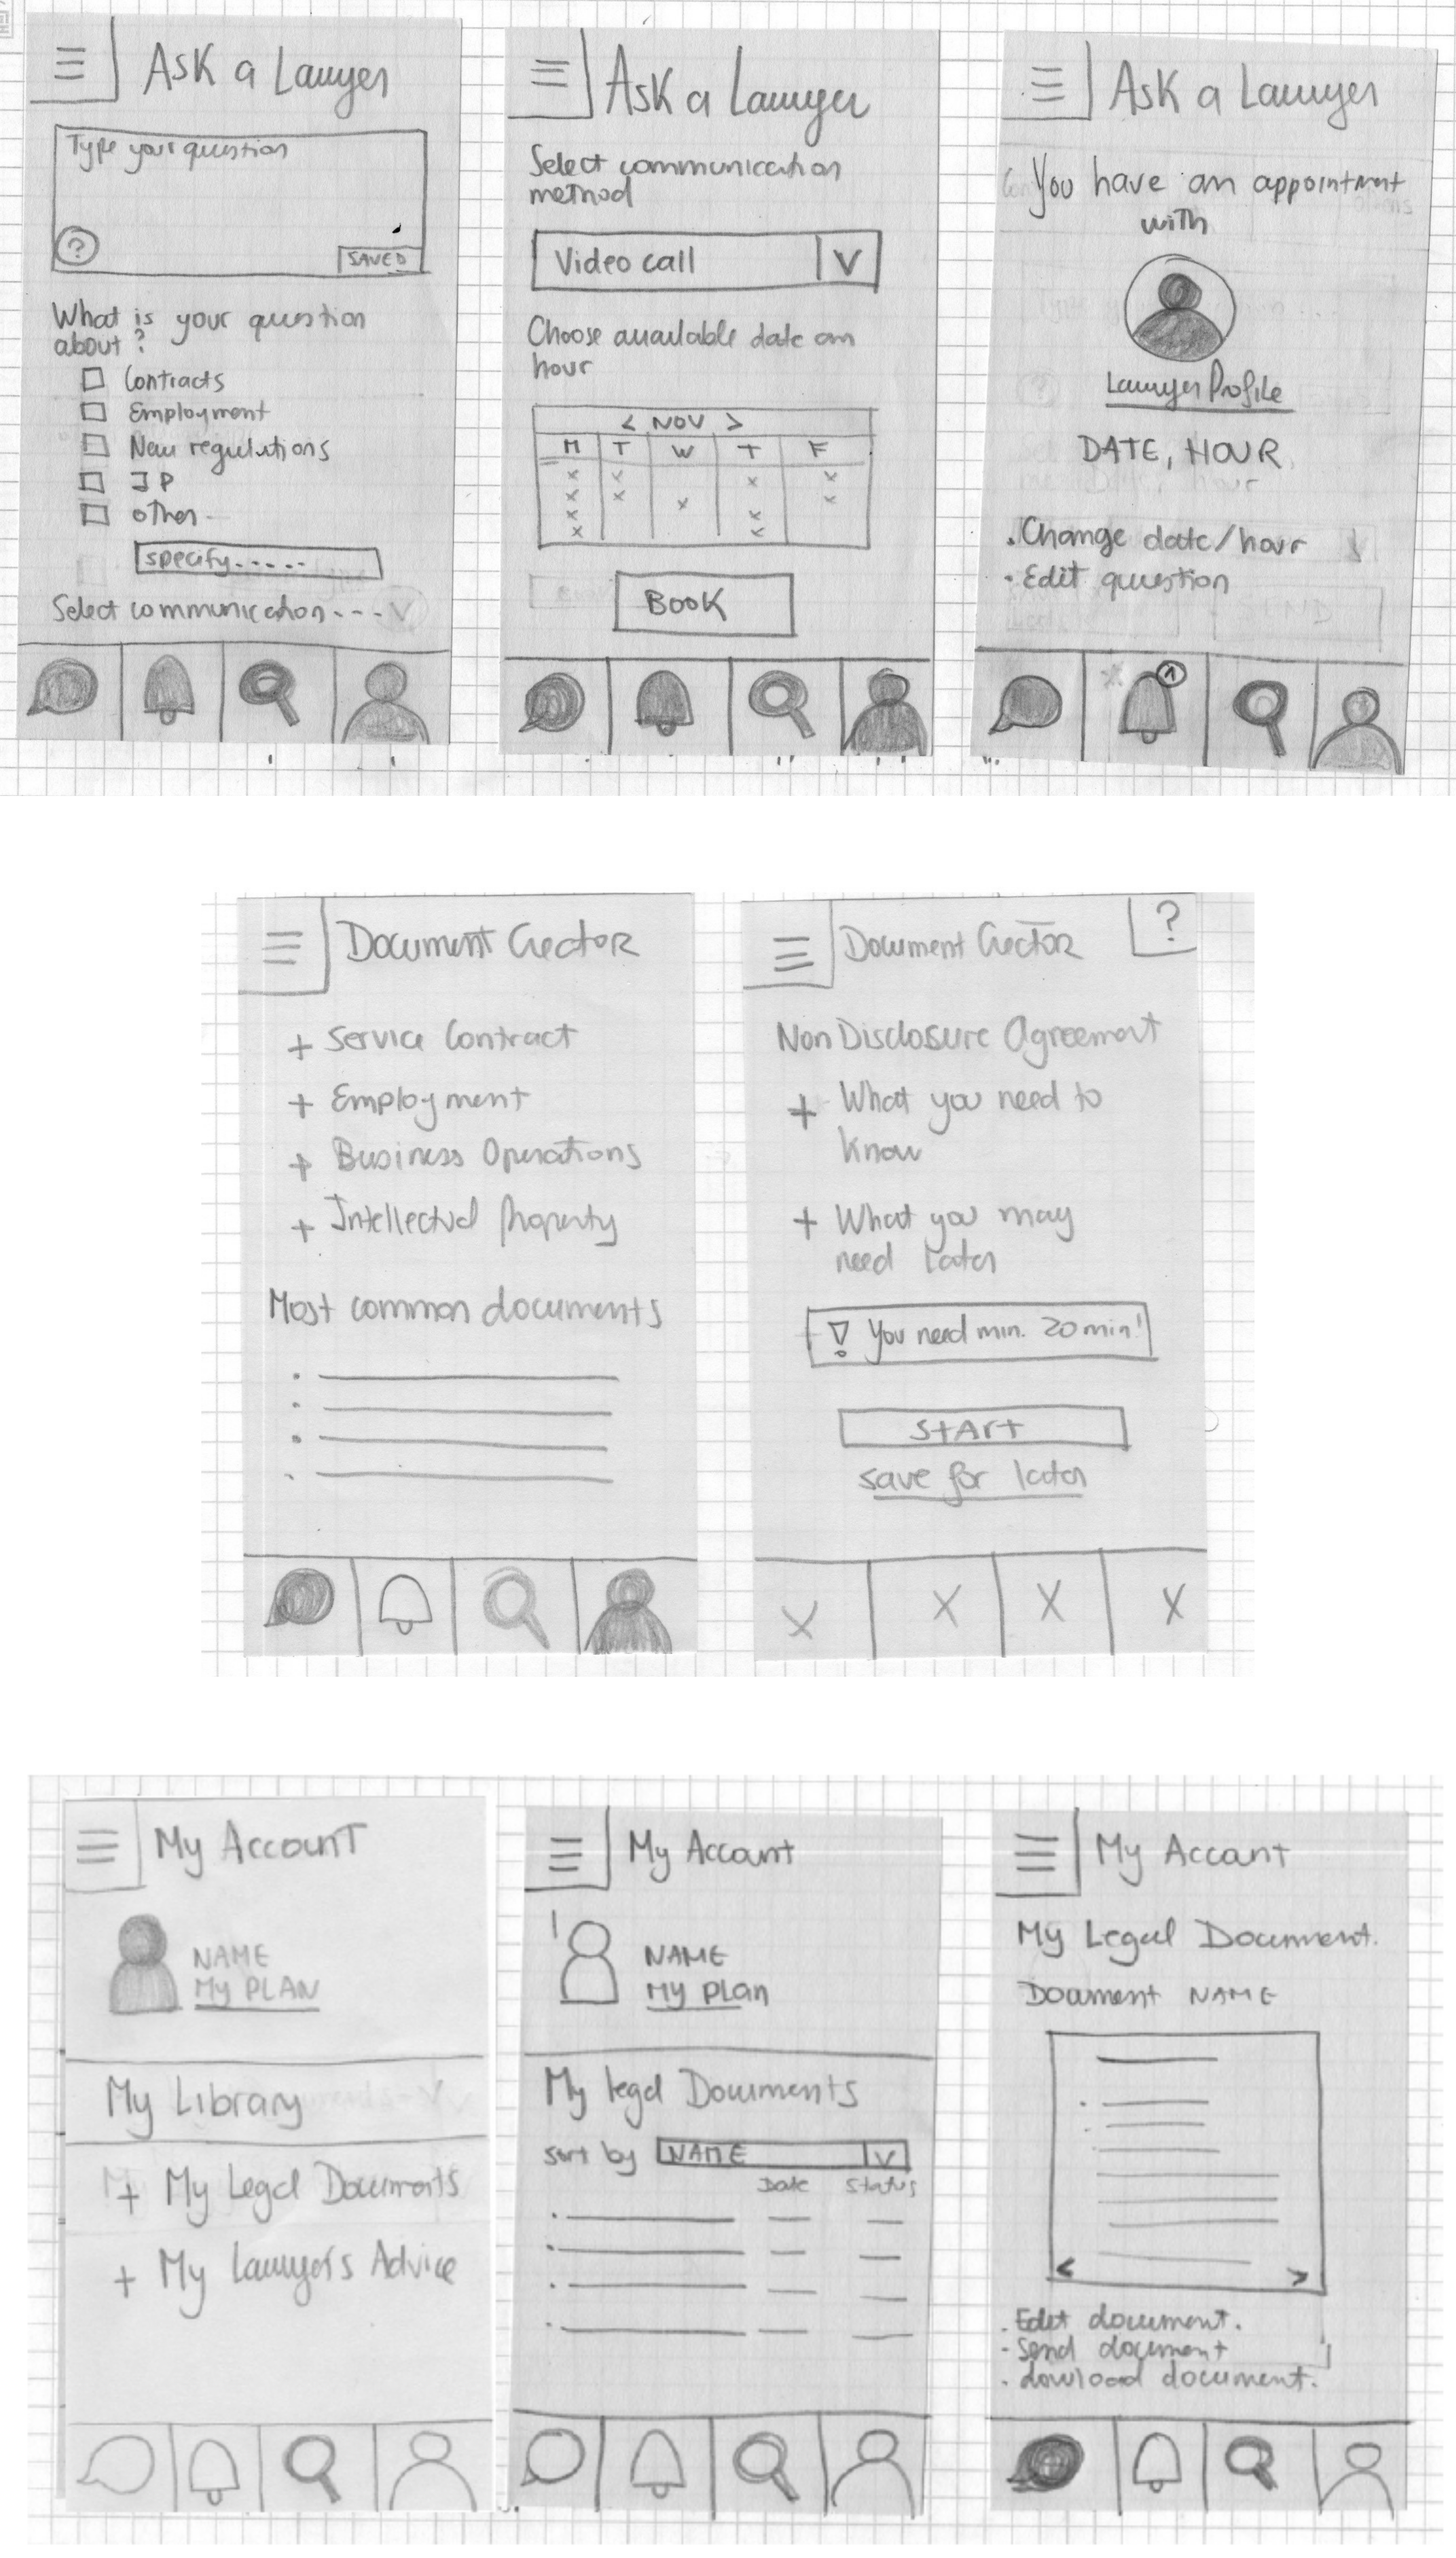 Ask a Lawyer
Type your question
?
SAVED
What is your question
about?
Contracts
Employment
New regulations
IP
other
specify.....
Select communication---V
Ask a Lawyer
Select communication
method
Video call V
Choose available date an
hour
< NOV >
M T W T F
x x x x
x x x x
x x
x x
BOOK
Ask a Lawyer
You have an appointment
with
Lawyer Profile
DATE, HOUR
. Change date/hour
- Edit question
1
Document Creator
+ Service Contract
+ Employment
+ Business Operations
+ Intellectual Property
Most common documents
Document Creator
?
Non Disclosure Agreement
+ What you need to
know
+ What you may
need later
! You need min. 20 min!
START
save for later
X X X X
My Account
NAME
My PLAN
My Library
+ My Legal Documents
+ My Lawyer's Advice
My Account
NAME
My Plan
My legal Documents
sort by NAME V
Date Status
My Account
My Legal Document.
Document NAME
< >
. Edit document.
- Send document
. download document.